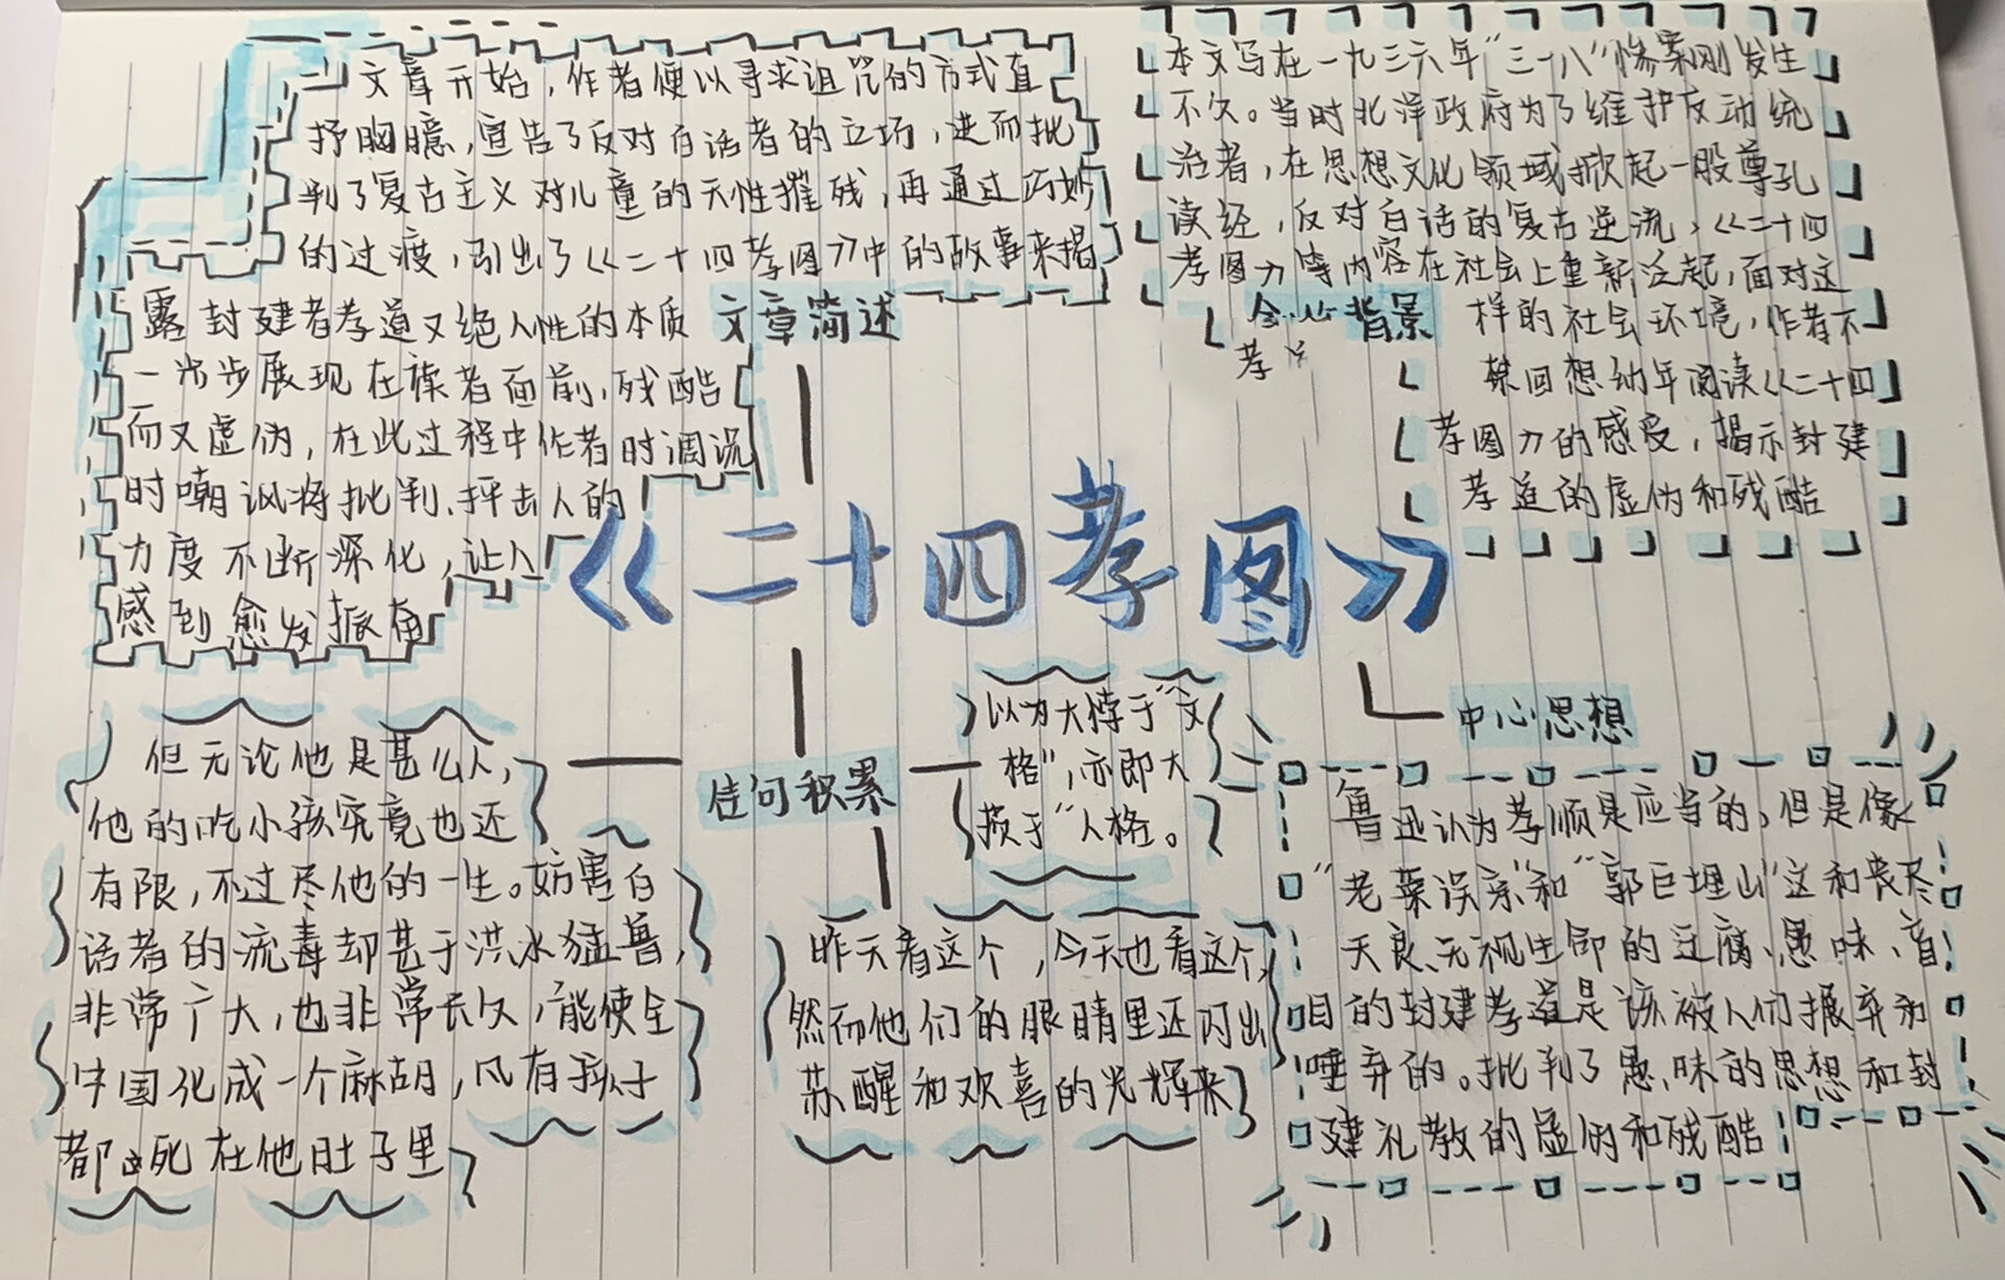 文章开始，作者便以寻求诅咒的方式直
抒胸臆，宣告了反对白话者的立场，进而批
判了复古主义对儿童的天性摧残，再通过巧妙
的过渡，引出了《二十四孝图》中的故事来揭
露封建者孝道又绝人性的本质
一步步展现在读者面前，残酷
而又虚伪，在此过程中作者时调侃
时嘲讽将批判、抨击人的
力度不断深化，让人
感到愈发振奋
文章简述
本文写在一九三六年“三一八”惨案刚发生
不久。当时北洋政府为了维护反动统
治者，在思想文化领域掀起一股尊孔
读经，反对白话的复古逆流，《二十四
孝图》等内容在社会上重新泛起，面对这
样的社会环境，作者不
禁回想幼年阅读《二十四
孝图》的感受，揭示封建
孝道的虚伪和残酷
背景
孝
《二十四孝图》
佳句积累
但无论他是甚么人，
他的吃小孩究竟也还
有限，不过尽他的一生。妨害白
话者的流毒却甚于洪水猛兽，
非常广大，也非常长久，能使全
中国化成一个麻胡，凡有孩子
都死在他肚子里
以为大悖于“文
格”，亦即大
损于“人格。
昨天看这个，今天也看这个，
然而他们的眼睛里还闪出
苏醒和欢喜的光辉来
中心思想
鲁迅认为孝顺是应当的，但是像
“老莱误亲”和“郭巨埋山”这和丧尽
天良、无视生命的迂腐、愚昧、盲
目的封建孝道是该被人们摒弃和
唾弃的。批判了愚昧的思想和封
建礼教的虚伪和残酷